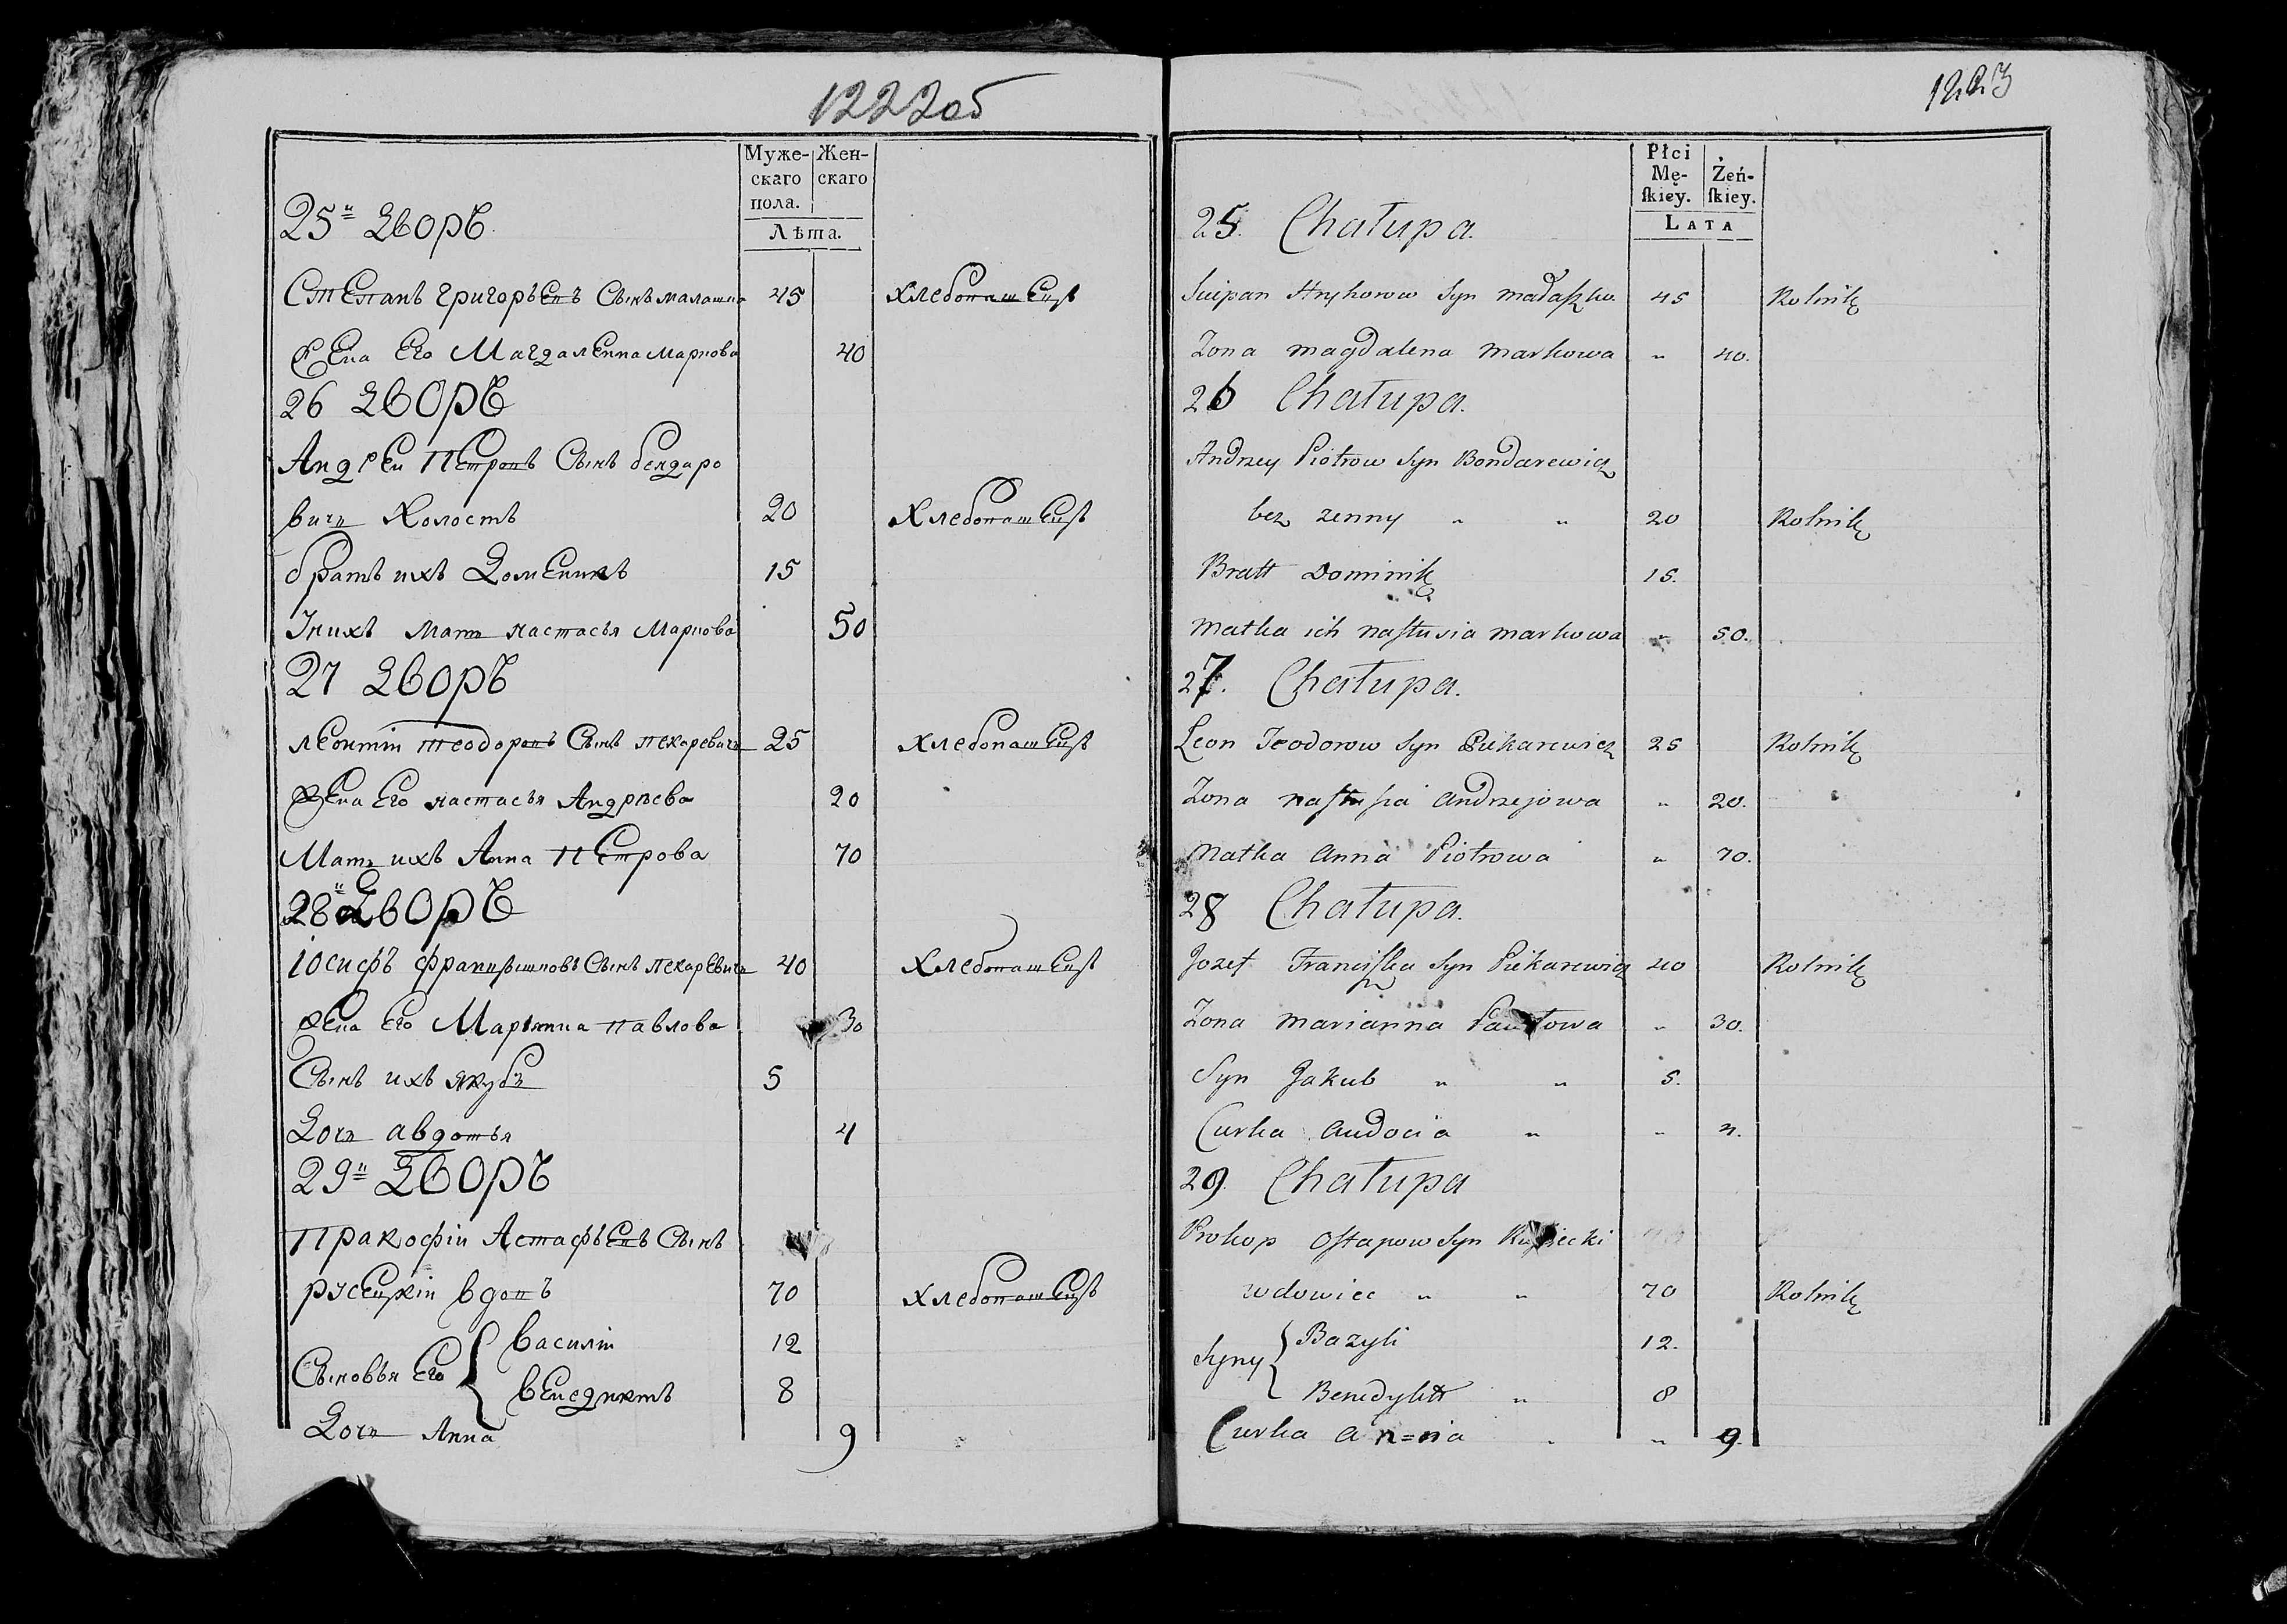 1222об
Муже- Жен-
скаго скаго
пола.
Лѣта.
25й Дворъ
Степанъ Григорьевъ Сынъ 45 Хлебопашецъ
Жена Его Магдаленна Маркова 40
26 Дворъ
Андрей Петровъ Сынъ бендаро
вичь Холостъ 20 Хлебопашецъ
братъ ихъ Доменикъ 15
Інихъ Мать настасья Маркова 50
27 Дворъ
леонтій теодоровъ Сынъ пекаревичь 25 Хлебопашецъ
Жена Его настасья Андрѣева 20
Мать ихъ Анна Петрова 70
28й Дворъ
Іосифъ Сынъ пекаревичь 40 Хлебопашецъ
Жена Его Марьянна павлова 30
Сынъ ихъ якубъ 5
Дочь авдотья 4
29й Дворъ
Пракофій Астафьевъ Сынъ
русецкій вдовъ 70 Хлебопашецъ
Сыновья Его { василій 12
венедиктъ 8
Дочь Анна 9
1223
Płci
Mę- Żeń-
ſkiey. ſkiey.
LATA
25. Chałupa.
Scipan Hryhorow Syn 45 Rolnik
Zona magdalena markowa " 40.
26 Chałupa.
Andrzey Piotrow Syn Bondarewicz
bez zenny " " 20 Rolnik
Bratt Dominik 15.
Matka ich naſtusia markowa " 50.
27. Chałupa.
Leon Teodorow Syn Piekarewicz 25 Rolnik
Zona naſtuſia andrzejowa " 20.
Matka anna Piotrowa " 70.
28 Chałupa.
Jozef Franciſzka Syn Piekarewicz 40 Rolnik
Zona marianna Pawłowa " 30.
Syn Jakub " " 5.
Curka audocia " " 4.
29. Chałupa
Prokop Oſtapow Syn
wdowiec " " 70 Rolnik
Syny { Bazyli 12.
Benedyktt " 8
Curka an=na " 9.